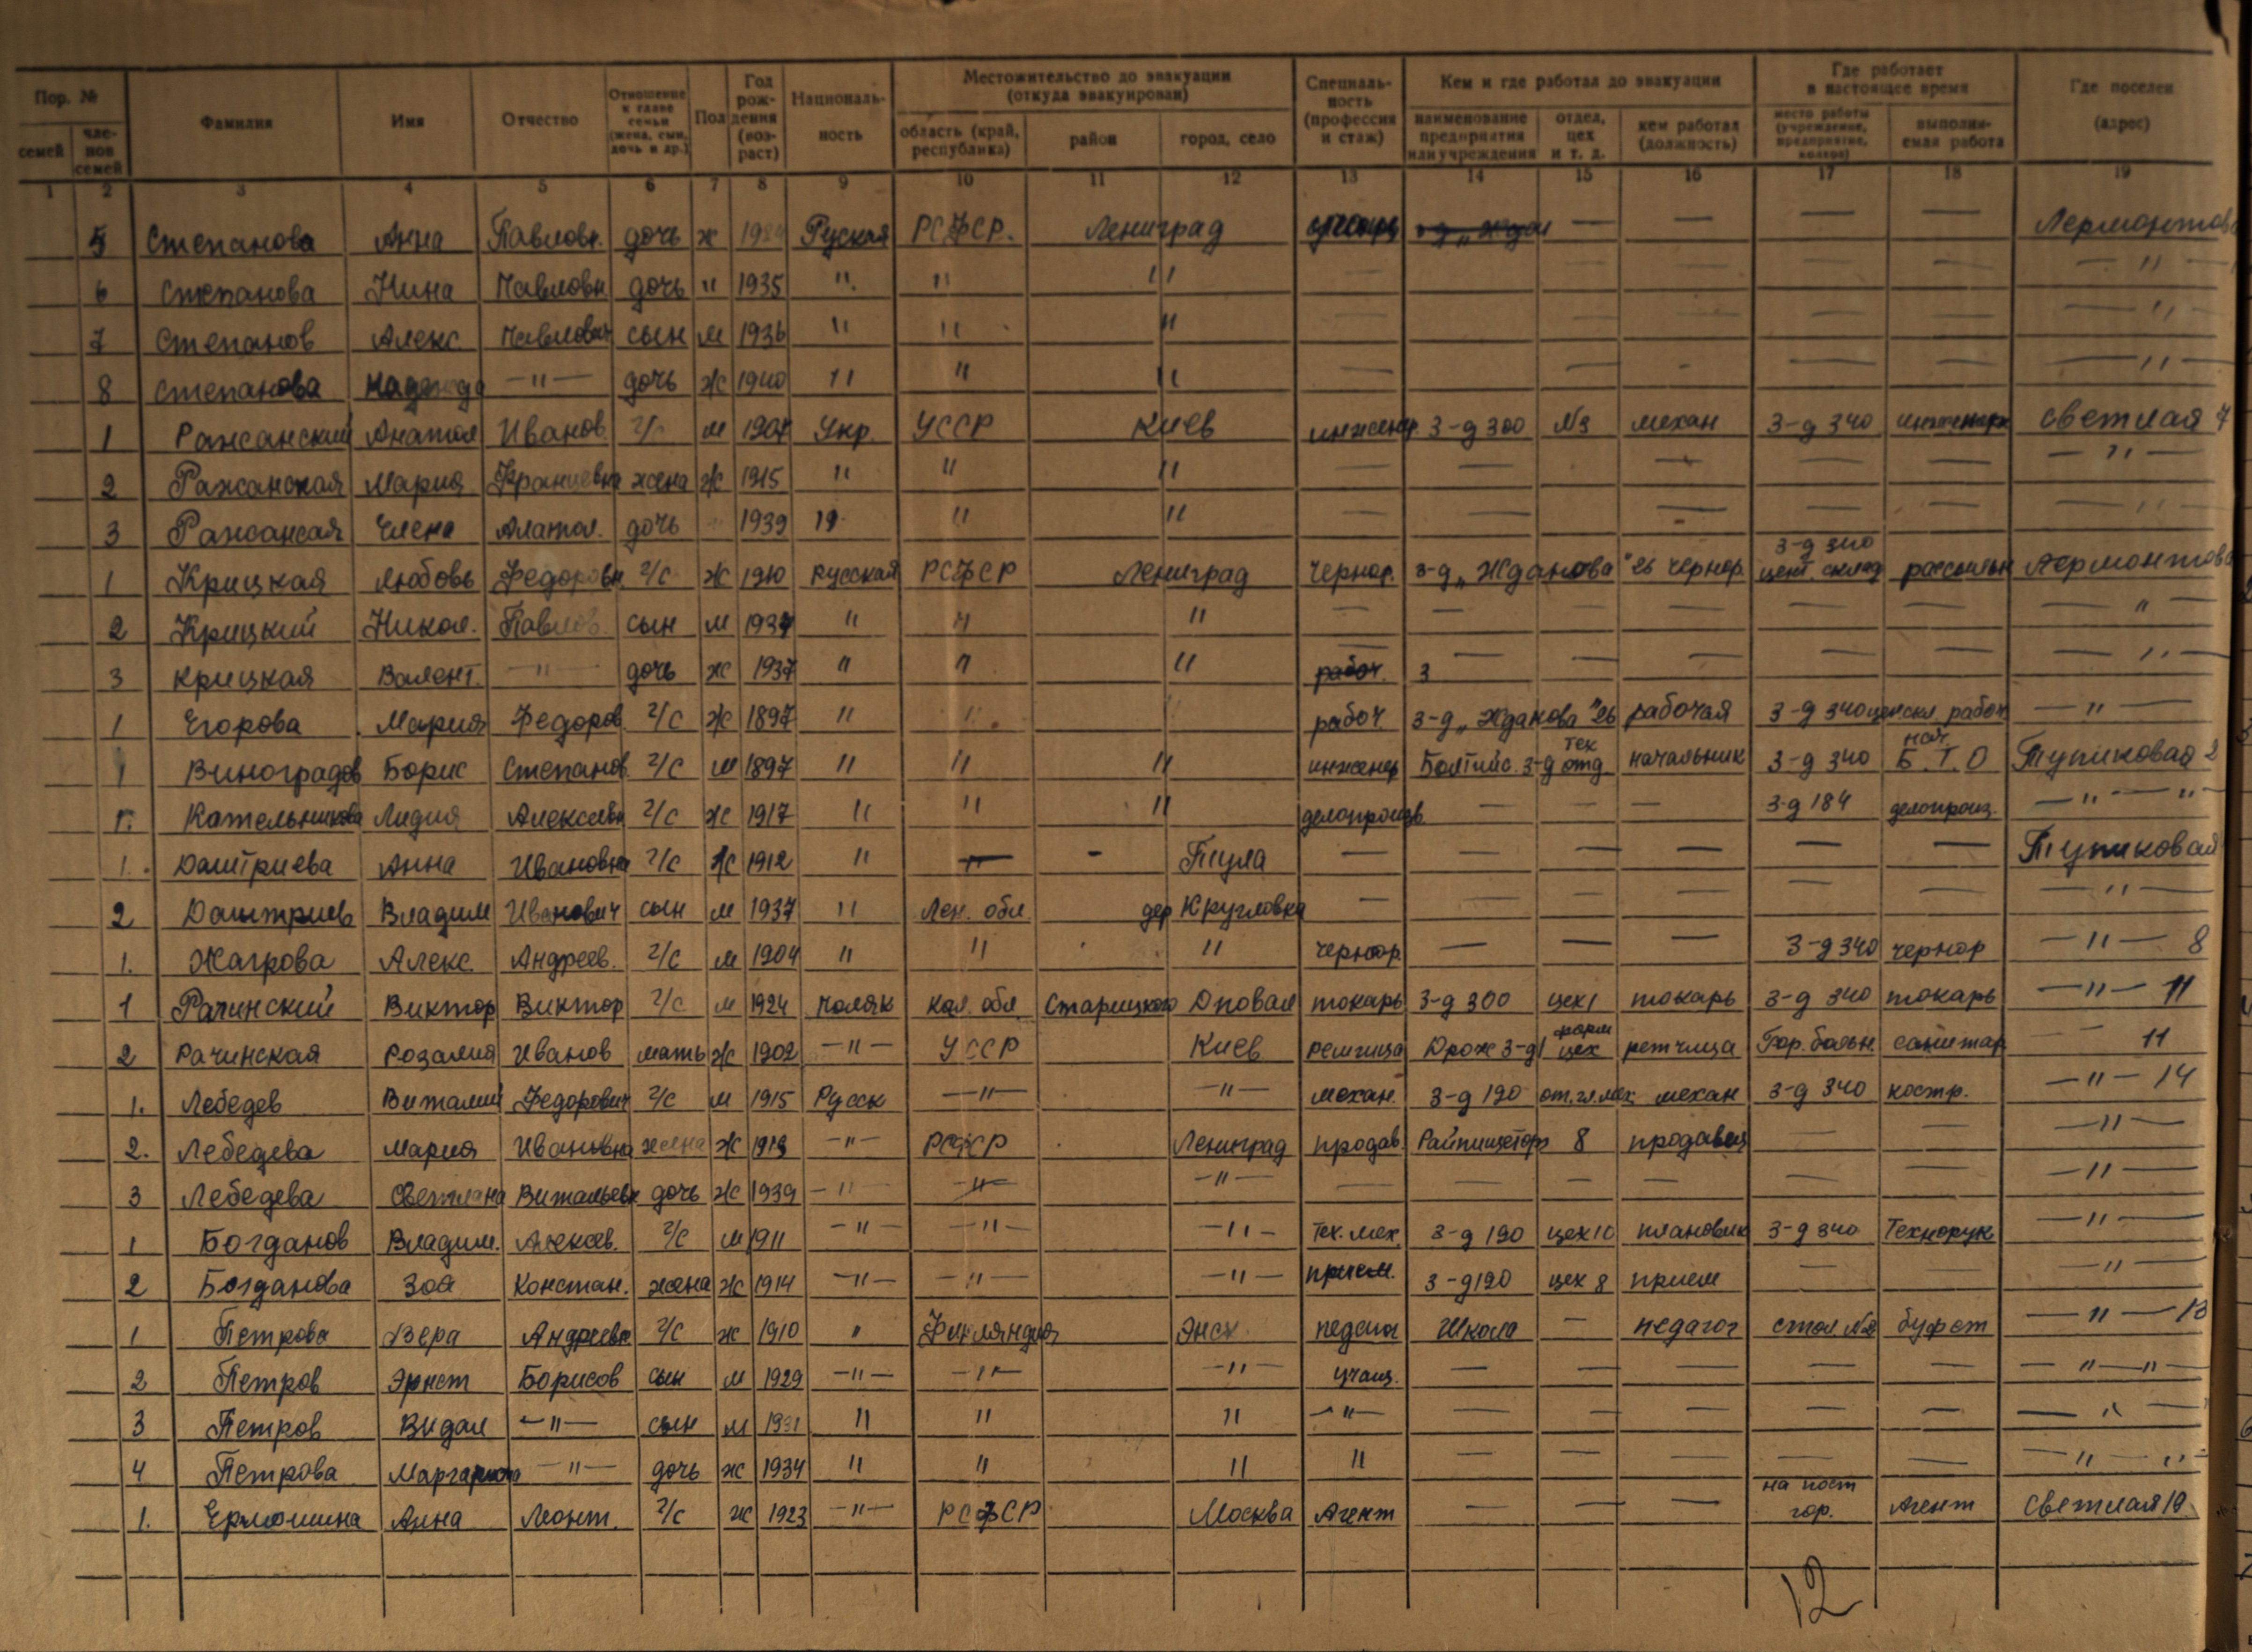 Пор. № Фамилия Имя Отчество Отношение к главе семьи (жена, сын, дочь и др.) Пол Год рождения (возраст) Национальность Местожительство до эвакуации (откуда эвакуирован) Специальность (профессия и стаж) Кем и где работал до эвакуации Где работает в настоящее время Где поселен (адрес)
семей членов семей область (край, республика) район город, село наименование предприятия или учреждения отдел, цех и т. д. кем работал (должность) место работы (учреждение, предприятие, колхоз) выполняемая работа
1 2 3 4 5 6 7 8 9 10 11 12 13 14 15 16 17 18 19
5 Степанова Анна Павловн. дочь ж Руская РСФСР. Ленинград — — — — Лермонтова
6 Степанова Нина Павловн дочь " 1935 " " " — — — — — — — " —
7 Степанов Алекс Павлович сын м 1936 " " " — — — — — — — " —
8 Степанова Надежда — " — дочь ж 1940 " " " — — — — — — " —
1 Ражанский Анатол Иванов. г/с м 1907 Укр. УССР Киев инженер. з-д 300 №3 механ з-д 340 инженер Светлая 7
2 Ражанская Мария жена ж 1915 " " " — — — — — — " —
3 Ражансая Анатол. дочь " 1939 " " — — — — — — " —
1 Крицкая Любовь Федоровн. г/с ж 1910 Русская РСФСР Ленинград чернор. з-д „Жданова" 26 чернор. з-д 340 цент. склад Лермонтова
2 Крицкий Никол. Павлов. сын м " " " — — — — — — — " —
3 Крицкая Валент. — " — дочь ж 1937 " " " рабоч. 3 — — — — — — " —
1 Егорова Мария Федоров. г/с ж 1897 " " " рабоч з-д „Жданова" 26 рабочая з-д 340 рабоч — " —
1 Виноградов Борис Степанов. г/с м 1897 " " " инженер Болтийс. з-д тех отд. начальник з-д 340 нач Б.Т.О Тупиковая 2
1. Кательникова Лидия Алексеевн г/с ж 1917 " " " делопроизв. — — — з-д 184 делопроиз. — " — " —
1. Дмитриева Анна Ивановна г/с ж 1912 " — " — - Тула — — — — — — Тупиковая
2 Дмитриев Владим Иванович сын м 1937 " Лен. обл. дер Кругловка — — — — — — — " —
1. Жагрова Алекс. Андреев. г/с м 1904 " " " чернор. — — — з-д 340 чернор — " — 8
1 Рачинский Виктор Виктор г/с м 1924 поляк Кал. обл. Старицкого токарь з-д 300 цех 1 токарь з-д 340 токарь — " — 11
2 Рачинская Розалия Иванов мать ж 1902 — " — УССР Киев Дрож з-д цех Гор. больн. санитар — 11
1. Лебедев Виталий Федорович г/с м 1915 Русск — " — — " — механ. з-д 190 от. гл. мех. механ з-д 340 костр. — " — 14
2. Лебедева Мария Ивановна жена ж — " — РСФСР Ленинград продав. Райпищеторг 8 продавец — — — " —
3 Лебедева Светлана Витальевн дочь ж 1939 — " — — " — — " — — — — — — — — " —
1 Богданов Владим. Алексев. г/с м 1911 — " — — " — — " — Тех. мех. з-д 190 цех 10 плановик з-д 340 Технорук — " —
2 Богданова Зоя Констан. жена ж 1914 — " — — " — — " — прием. з-д 190 цех 8 прием — — — " —
1 Петрова Вера Андреевн г/с ж 1910 " Финляндия Энск педагог Школа — педагог стол. №8 буфет — " — 13
2 Петров Эрнст Борисов сын м 1929 — " — — " — — " — учащ. — — — — — — " — " —
3 Петров Видал — " — сын м 1931 " " " — " — — — — — — — " —
4 Петрова Маргарита — " — дочь ж 1934 " " " " — — — — — — " — " —
1. Ермошина Анна Леонт. г/с ж 1923 — " — РСФСР Москва Агент — — — на пост гор. Агент Светлая 19
12